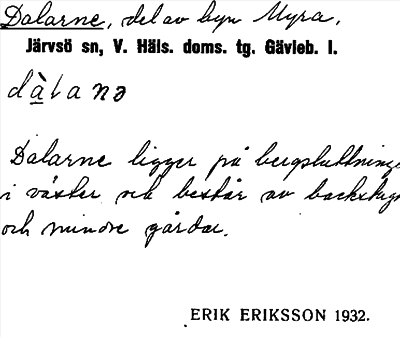 Dalarne, del av byn Myra,
Järvsö sn, V. Häls. doms. tg. Gävleb. l.
dàlanə
Dalarne ligger på bergsluttninge
i väster och består av backstug
och mindre gårdar.
ERIK ERIKSSON 1932.